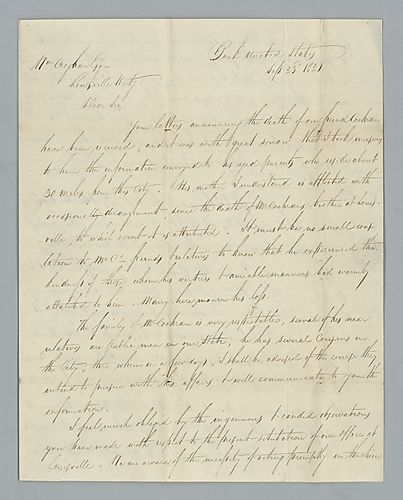 Bank United States
Sept 25th 1821
Wm Croghan Esqr
Louisville Kenty
Dear Sir,
Your letters announcing the death of our friend Cochran
have been received, and it was with great sorrow that I took measures
to have the information conveyed to his aged parents who reside about
30 miles from this City. His mother I understand is afflicted with
occasional derangement, since the death of Mr Cochrans brother at Louis-
-ville, to which event it is attributed. It must be no small conso-
lation to Mr C's friends & relatives to know that he experienced the
kindness of those whom his virtues & amiable manners had warmly
attached to him. Many here mourn his loss.
The family of Mr Cochran is very respectable, several of his near
relatives are public men in our State, he has several Cousins in
the City, thro whom in a few days, I shall be advised of the course they
intend to pursue with his affairs & will communicate to you the
information.
I feel much obliged by the ingenious & candid observations
you have made with respect to the present situation of our Office at
Louisville. We are aware of the necessity of acting promptly in the